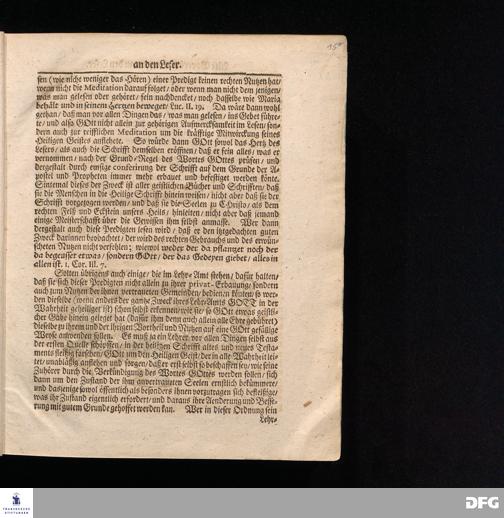 an den Leser.
sen (wie nicht weniger das Hören) einer Predigt keinen rechten Nutzen hat/
wenn nicht die Meditation darauf folget/ oder wenn man nicht dem jenigen/
was man gelesen oder gehöret/ fein nachdencket/ noch dasselbe wie Maria
behält und in seinem Hertzen beweget/ Luc. II. 19. Da wäre dann wohl
gethan/ daß man vor allen Dingen das/ was man gelesen/ ins Gebet führe-
te/ und also GOtt nicht allein zur gehörigen Aufmercksamkeit im Lesen/ son-
dern auch zur trifflichen Meditation um die kräfftige Mitwirckung seines
Heiligen Geistes anflehete. So würde dann GOtt sowol das Hertz des
Lesers/ als auch die Schrifft demselben eröffnen/ daß er fein alles/ was er
vernommen/ nach der Grund-Regel des Wortes GOttes prüfen/ und
dergestalt durch emsige conferierung der Schrifft auf dem Grunde der A-
postel und Propheten immer mehr erbauet und befestiget werden könte.
Sintemal dieses der Zweck ist aller geistlichen Bücher und Schrifften/ daß
sie die Menschen in die Heilige Schrifft hinein weisen/ nicht aber daß sie der
Schrifft vorgezogen werden/ und daß sie die Seelen zu Christo/ als dem
rechten Felß und Eckstein unsers Heils/ hinleiten/ nicht aber daß jemand
einige Meisterschafft über die Gewissen ihm selbst anmasse. Wer dann
dergestalt auch diese Predigten lesen wird/ daß er den itztgedachten guten
Zweck darinnen beobachtet/ der wird des rechten Gebrauchs und des erwün-
scheten Nutzen nicht verfehlen; wiewol weder der da pflantzet noch der
da begeusset etwas/ sondern GOtt/ der das Gedeyen giebet/ alles in
allen ist. 1. Cor. III. 7.
Solten übrigens auch einige/ die im Lehr-Amt stehen/ dafür halten/
daß sie sich dieser Predigten nicht allein zu ihrer privat-Erbauung/ sondern
auch zum Nutzen der ihnen vertraueten Gemeinden/ bedienen könten/ so wer-
den dieselbe (wenn anders der gantze Zweck ihres Lehr-Amts GOTT in der
Wahrheit geheiliget ist) schon selbst erkennen/ wie sie/ so GOtt etwas geistli-
cher Gabe hinein gelegt hat (dafür ihm denn auch allein alle Ehre gebühret)
dieselbe zu ihrem und der Ihrigen Vortheil und Nutzen auf eine GOtt gefällige
Weyse anwenden sollen. Es muß ja ein Lehrer vor allen Dingen selbst aus
der ersten Quelle schöpffen/ in der heiligen Schrift altes und neues Testa-
ments fleißig forschen/ GOtt um den Heiligen Geist/ der in alle Wahrheit lei-
tet/ unabläßig anflehen und sorgen/ daß er erst selbst so beschaffen sey/ wie seine
Zuhörer durch die Verkündigung des Wortes GOttes werden sollen/ sich
dann um den Zustand der ihm anvertraueten Seelen ernstlich bekümmere/
und dasjenige sowol öffentlich als besonders ihnen vorzutragen sich befleißige/
was ihr Zustand eigentlich erfordert/ und daraus ihre Aenderung und Besse-
rung mit gutem Grunde gehoffet werden kan. Wer in dieser Ordnung sein
Lehr-
FRANCKESCHE
STIFTUNGEN
DFG